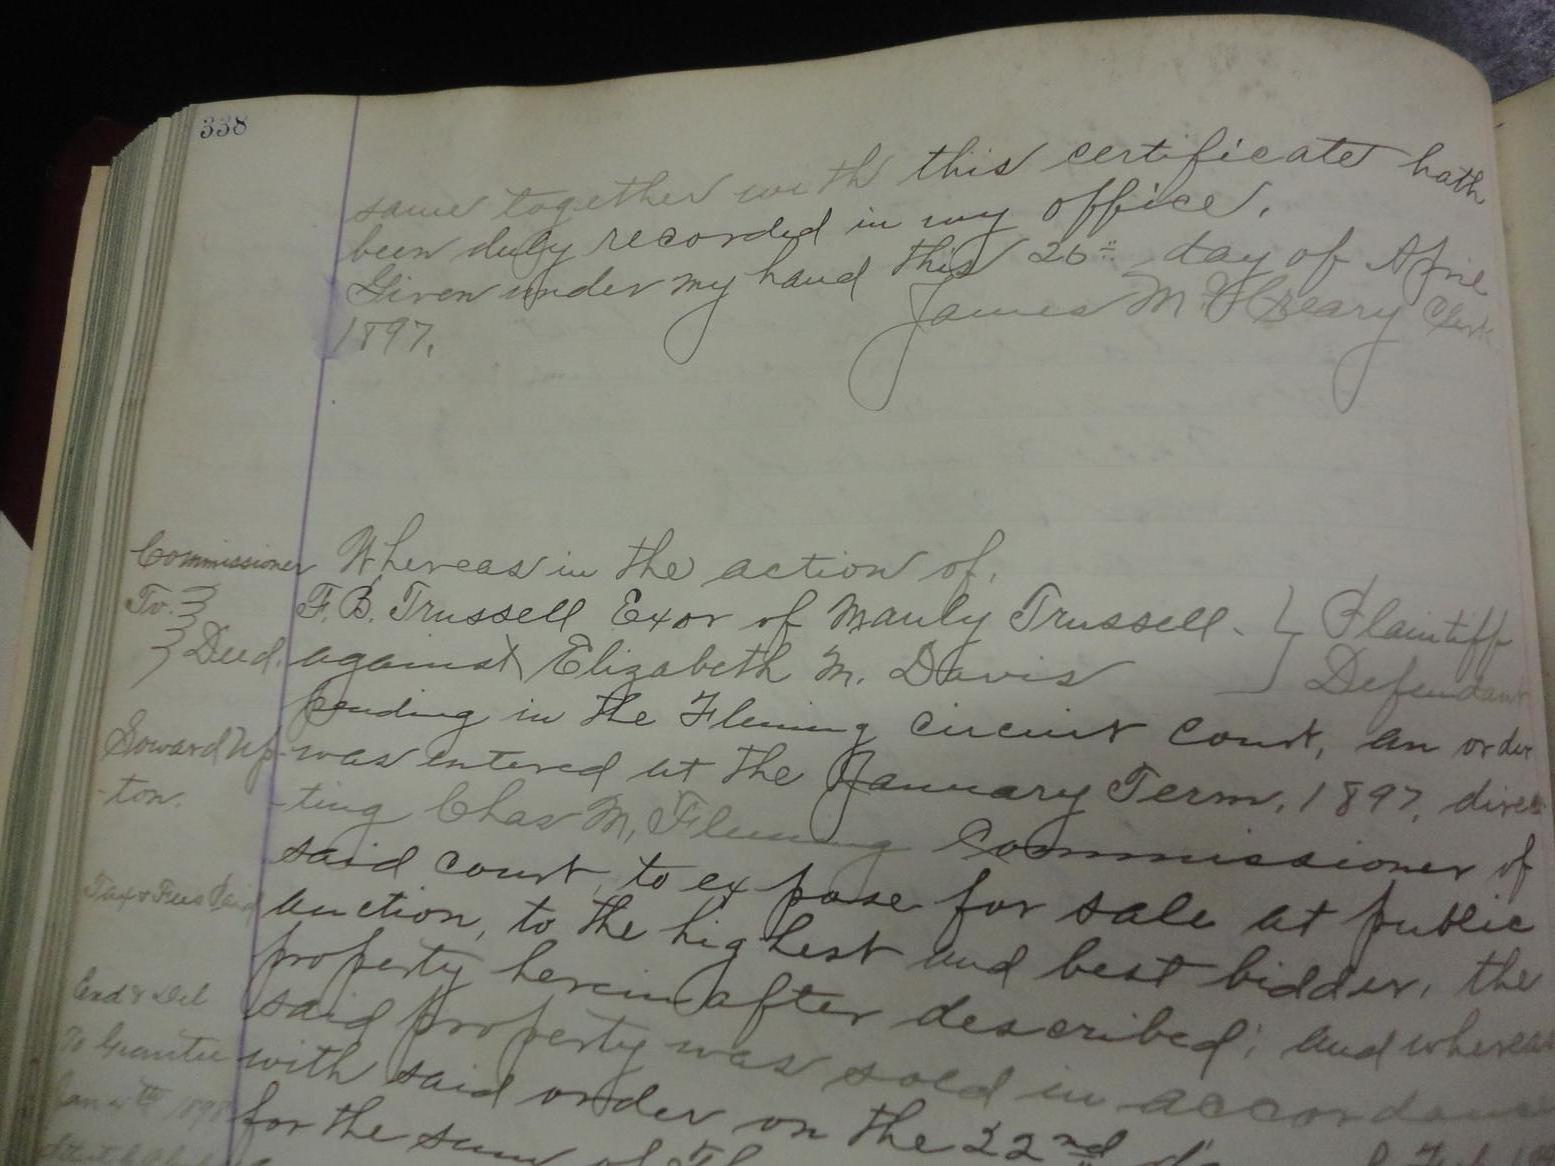 338
same together with this certificate hath
been duly recorded in my office.
Given under my hand this 26th day of April
1897.
James M Cleary Clerk
Commissioner
To
Deed.
Whereas in the action of.
F. B. Trussell Exor of Manly Trussell. Plaintiff
against Elizabeth M. Davis Defendant
pending in the Fleming circuit court, an order
Soward Up-
-ton.
was entered at the January Term, 1897, direc
-ting Chas M. Fleming Commissioner of
said court, to expose for sale at public
Tax & Fees Paid
auction, to the highest and best bidder, the
property herein after described; and whereas
End & Del
To Grantee
Jan 4th 1898
said property was sold in accordance
with said order on the 22nd
for the sum of